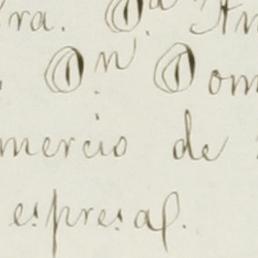 ra. D.ª An
D.n Dom
mercio de
espresal.